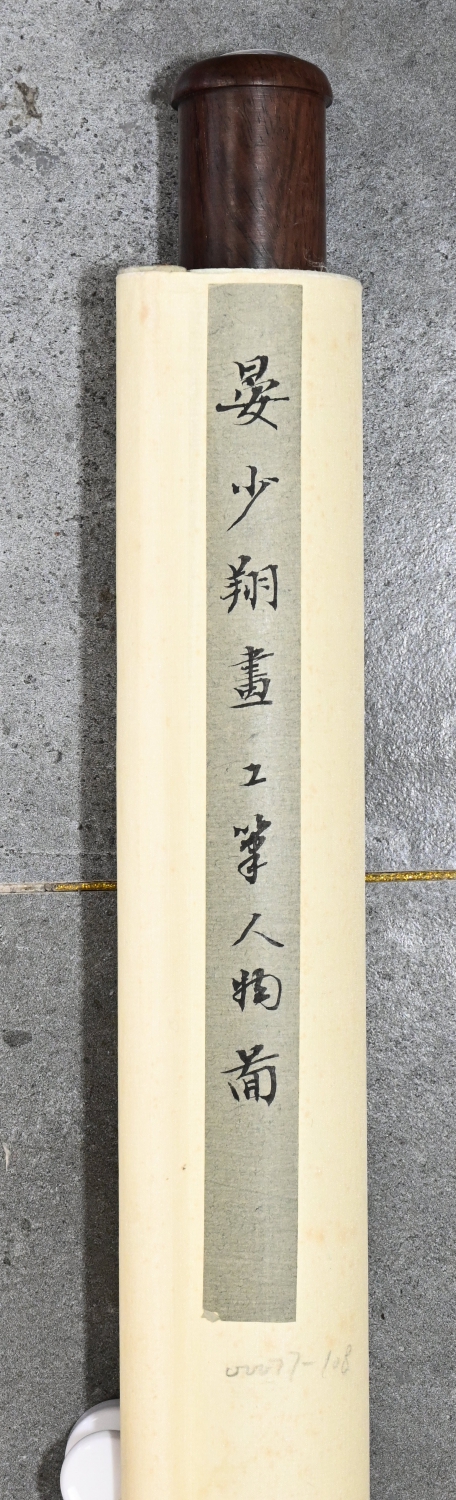 晏少翔畫工筆人物圖